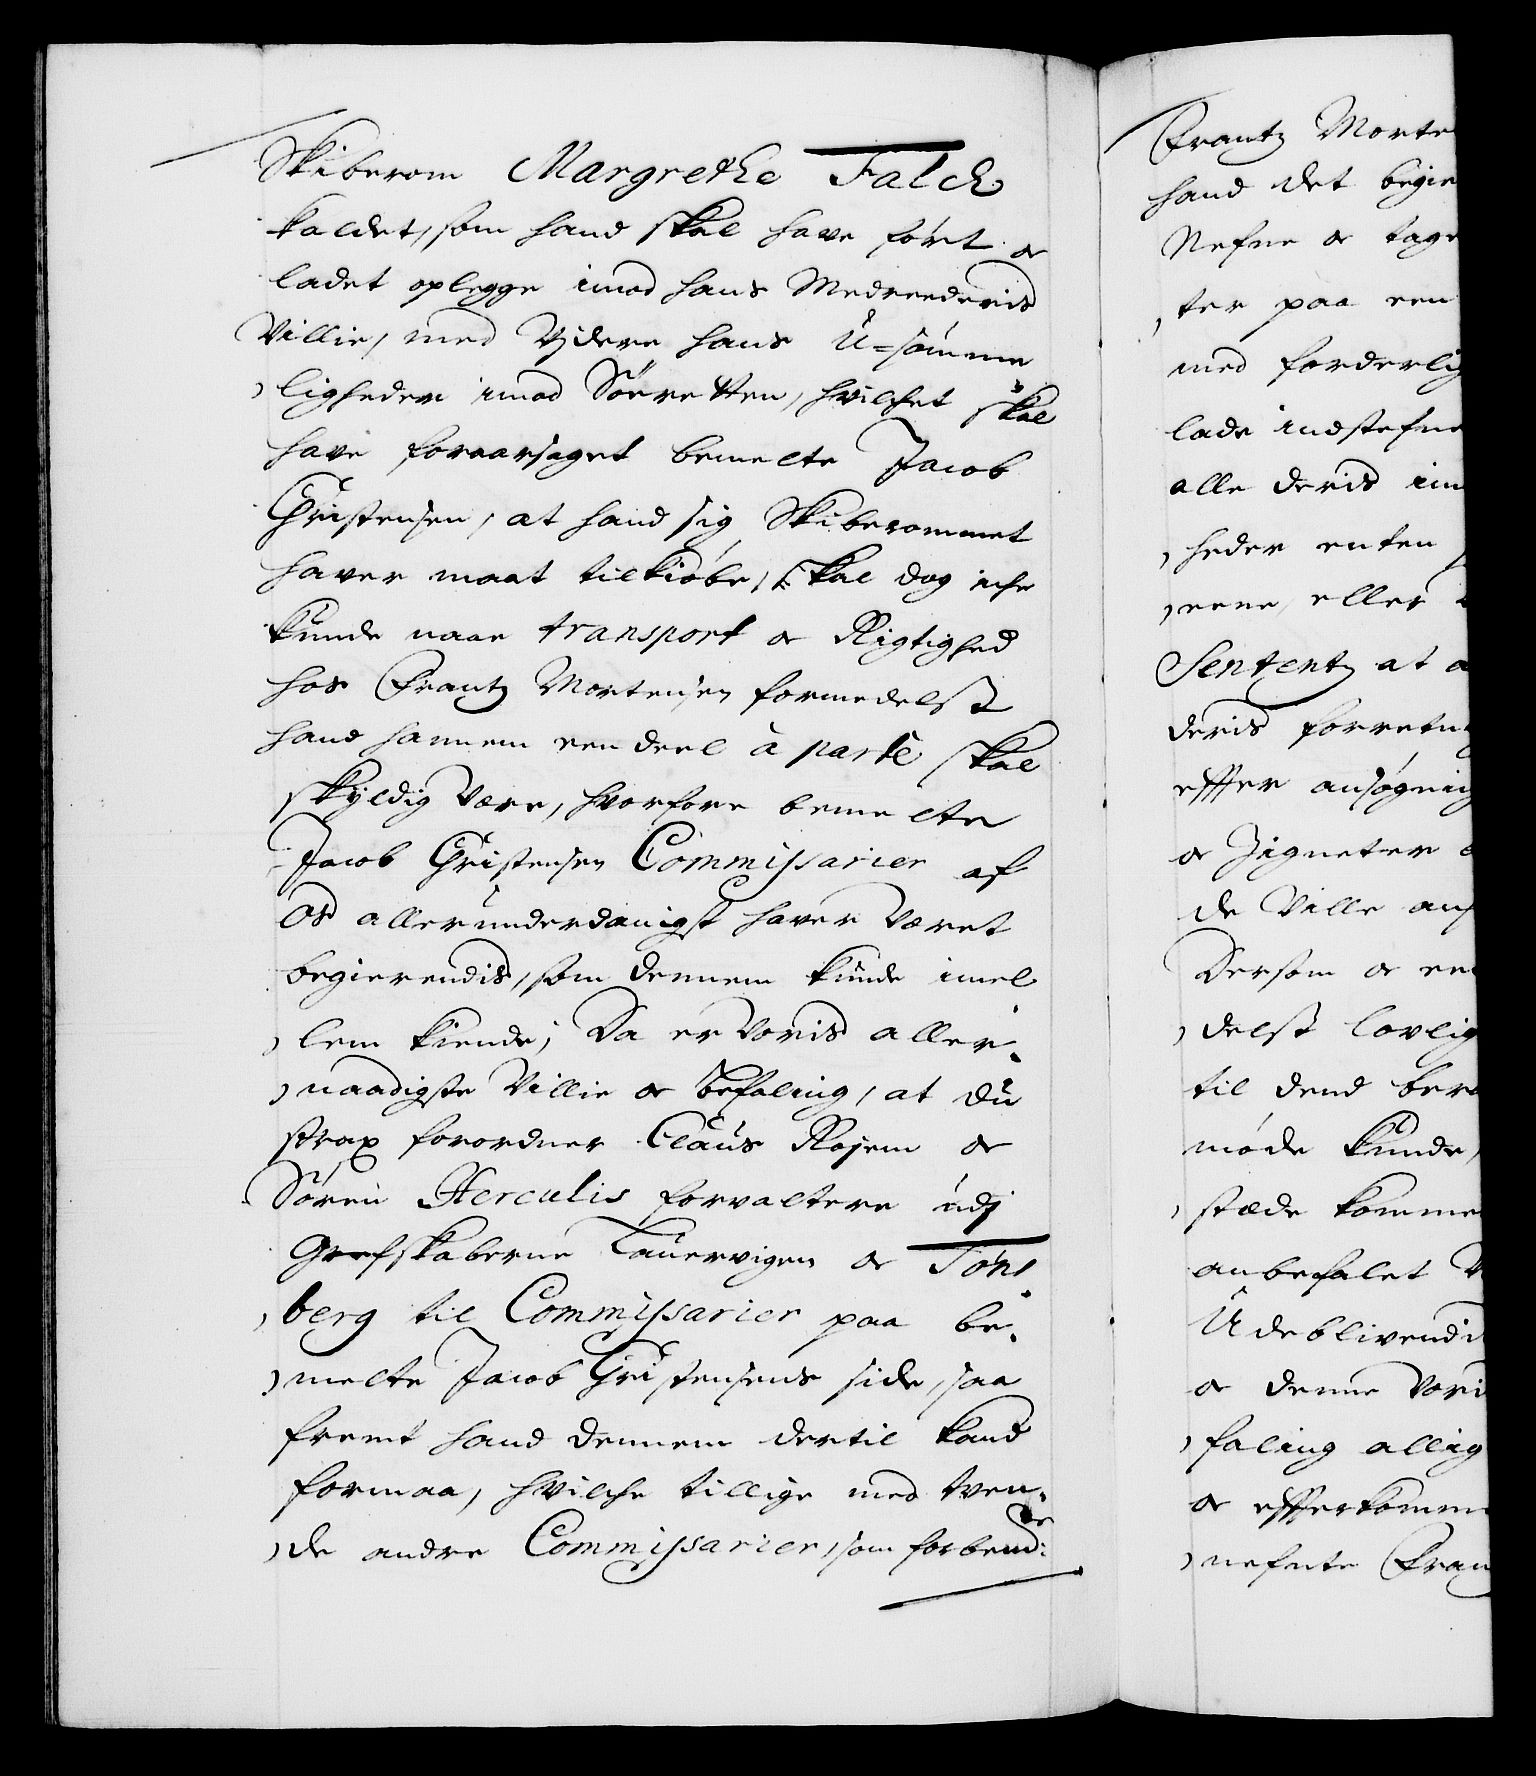 Skiberom Margrethe Falck
kaldet, som hand skal have ført oc
ladet oplegge imod hans Medreederis
Villie, med Videre hans U=sømme
ligheder imod Søeretten, hvilchet skal
have foraarsaget bemelte Jacob
Christensen, at hand sig Skiberommet
haver maat tilkiøbe, skal dog iche
kunde naae transport oc Rigtighed
hos Frantz Mortensen formedelst
hand hannem een deel à parte skal
skÿldig være, hvorfore bemelte
Jacob Christensen Commissarier af
Os allerunderdanigst haver været
begierendis, som dennem kunde imel
lem kiende; Da er Voris aller-
naadigste Villie oc Befaling, at du
strax forordner Claus Røyem oc
Søren Herculis forvaltere udj
Grefskaberne Laurvigen oc Tøns
berg til Commissarier paa be-
melte Jacob Christensens side, saa
fremt hand dennem dertil kand
formaa, hvilche tillige med tven-
de andre Commissarier, som forbemte
Frantz Morte
hand det begie
Nefne oc tage
ter paa een
med forderlig
lade indstefne
alle deris im
heder enten
eene eller
Sententz at a
deris forretn
effter ansøgnig
oc Zigneter
de Ville ans
Dersom oc een
delst lovlig
til dend ber
møde kunde,
stæde komme
anbefalet
Udeblivendi
oc denne Vori
faling allig
oc effterkomm
nefnte Fran